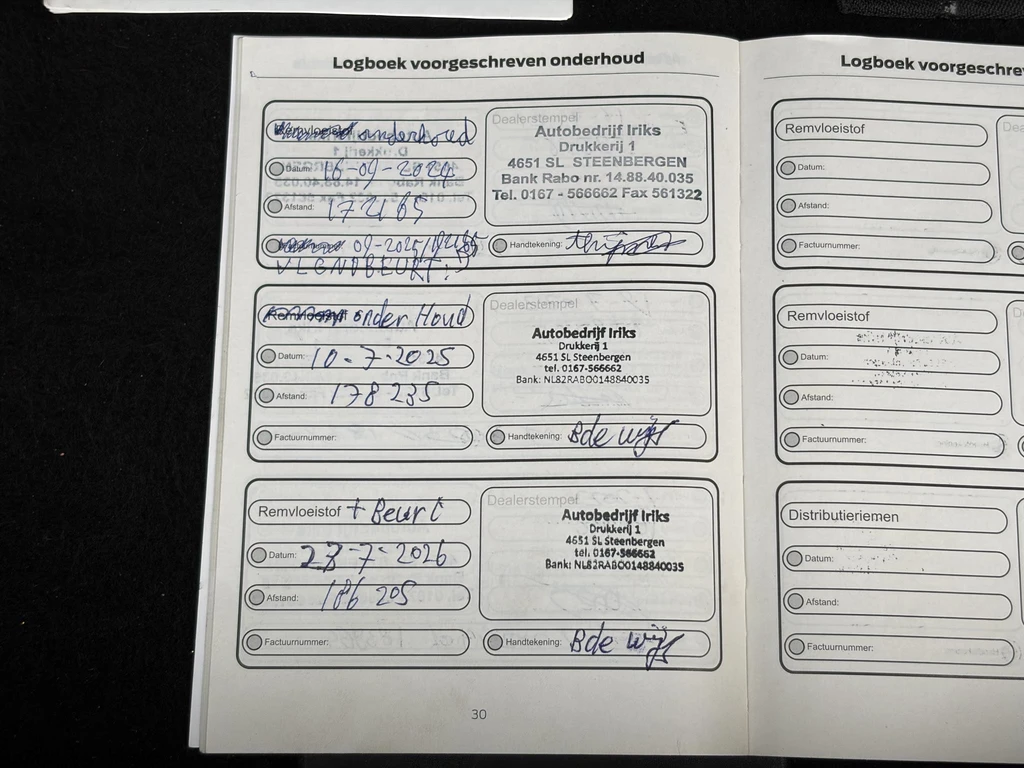 Logboek voorgeschreven onderhoud
onderhoud
Dealerstempel
Autobedrijf Iriks
Drukkerij 1
4651 SL STEENBERGEN
Bank Rabo nr. 14.88.40.035
Tel. 0167 - 566662 Fax 561322
Datum: 16-09-2024
Afstand: 172165
09-2025/
Handtekening:
VLGNDBEURT:
onderHoud
Dealerstempel
Autobedrijf Iriks
Drukkerij 1
4651 SL Steenbergen
tel. 0167-566662
Bank: NL82RABO0148840035
Datum: 10-7-2025
Afstand: 178 235
Factuurnummer:
Handtekening: Bde wijs
Remvloeistof + Beurt
Dealerstempel
Autobedrijf Iriks
Drukkerij 1
4651 SL Steenbergen
tel. 0167-566662
Bank: NL82RABO0148840035
Datum: 23-7-2026
Afstand: 186 205
Factuurnummer:
Handtekening: Bde wijs
30
Logboek voorgeschre
Remvloeistof
Datum:
Afstand:
Factuurnummer:
Remvloeistof
Datum:
Afstand:
Factuurnummer:
Distributieriemen
Datum:
Afstand:
Factuurnummer: